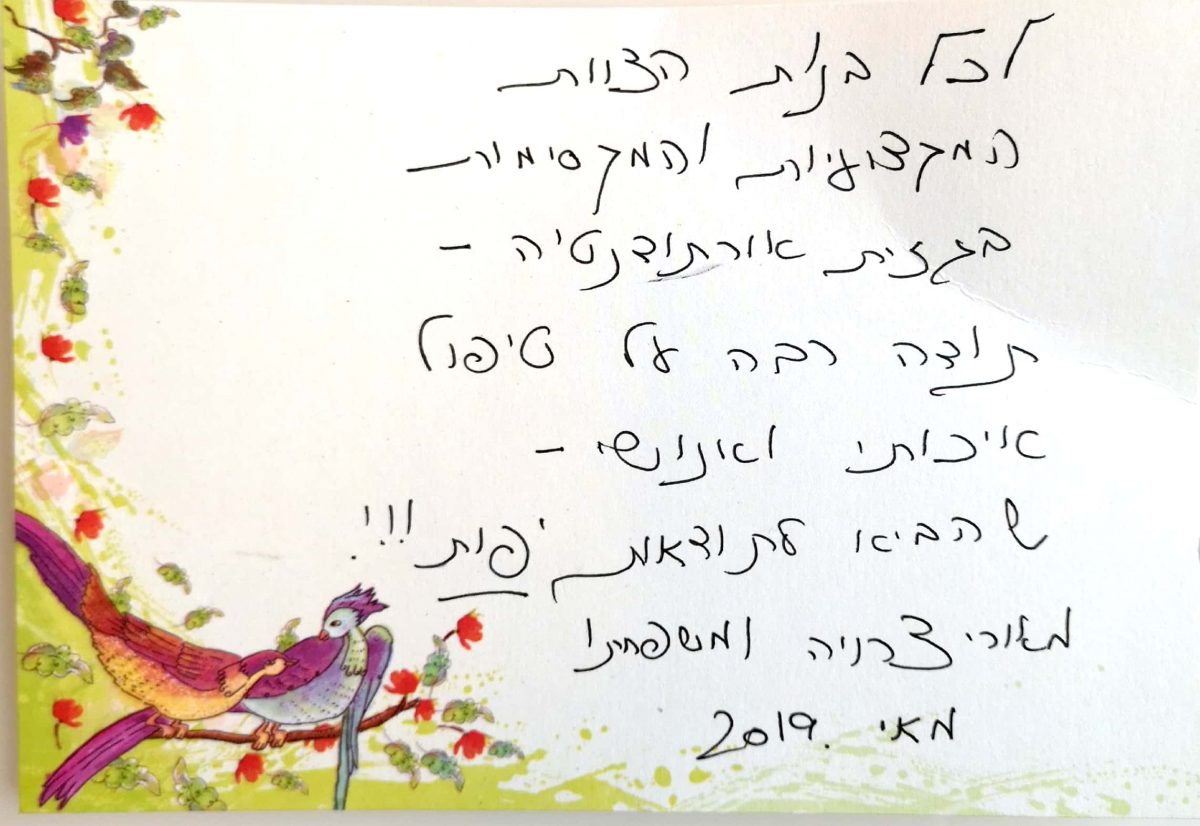 לכל בנות הצוות
המקצועיות והמקסימות
בגזית אורתודנטיה -
תודה רבה על טיפול
איכותי ואנושי -
שהביא לתוצאות יפות!!!
מאורי ומשפחתו
מאי 2019.